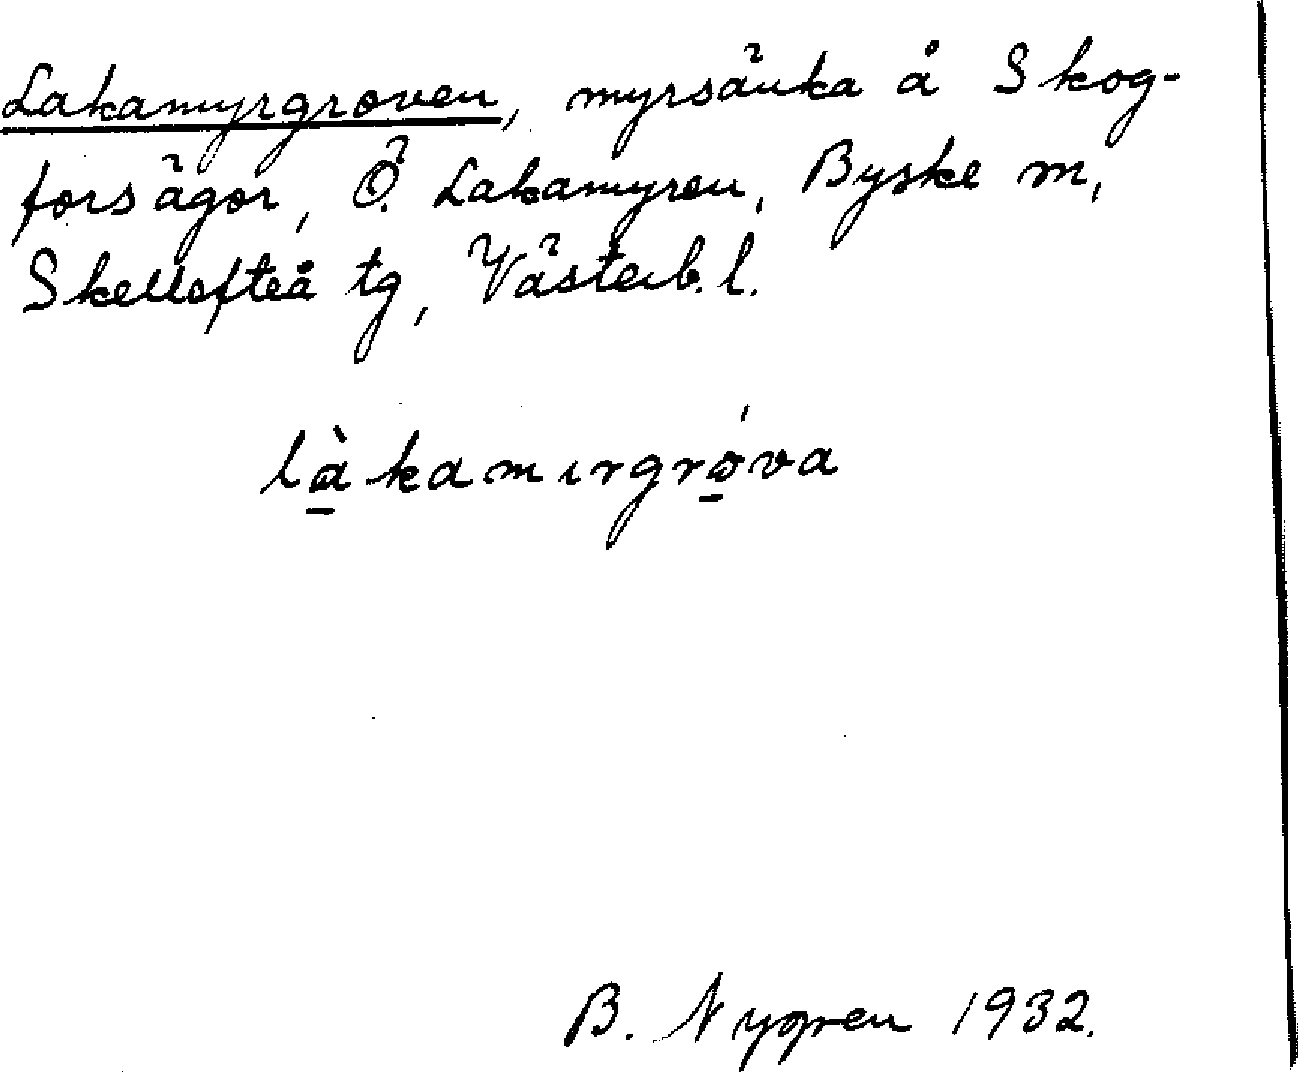 Lakamyrgroven, myrsänka å Skog-
forsägor, Ö. Lakamyren, Byske m,
Skellefteå tg, Västerb. l.
là̱kamırgrǿ̱va
B. Nygren 1932.